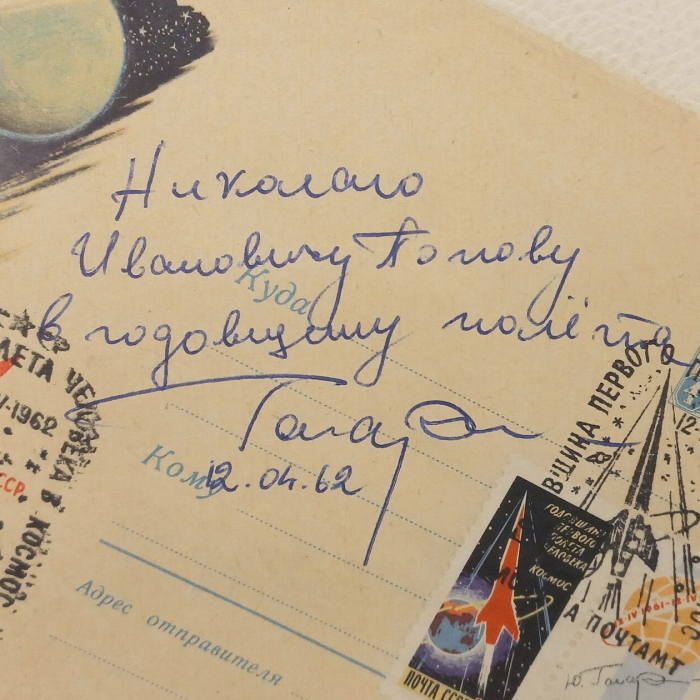 Николаю
Ивановичу Попову
в годовщину полёта
Гагарин
12.04.62
Куда
Кому
Адрес отправителя
ЛЕТА ЧЕЛОВЕКА В КОСМОС
1962
ССР
ВЩИНА ПЕРВОГО
ПОЧТАМТ
ГОДОВЩИНА
ПЕРВОГО
ПОЛЕТА
ЧЕЛОВЕКА
КОСМОС
ПОЧТА СССР
12 IV 1961-12 IV
12-
Ю. Гагарин